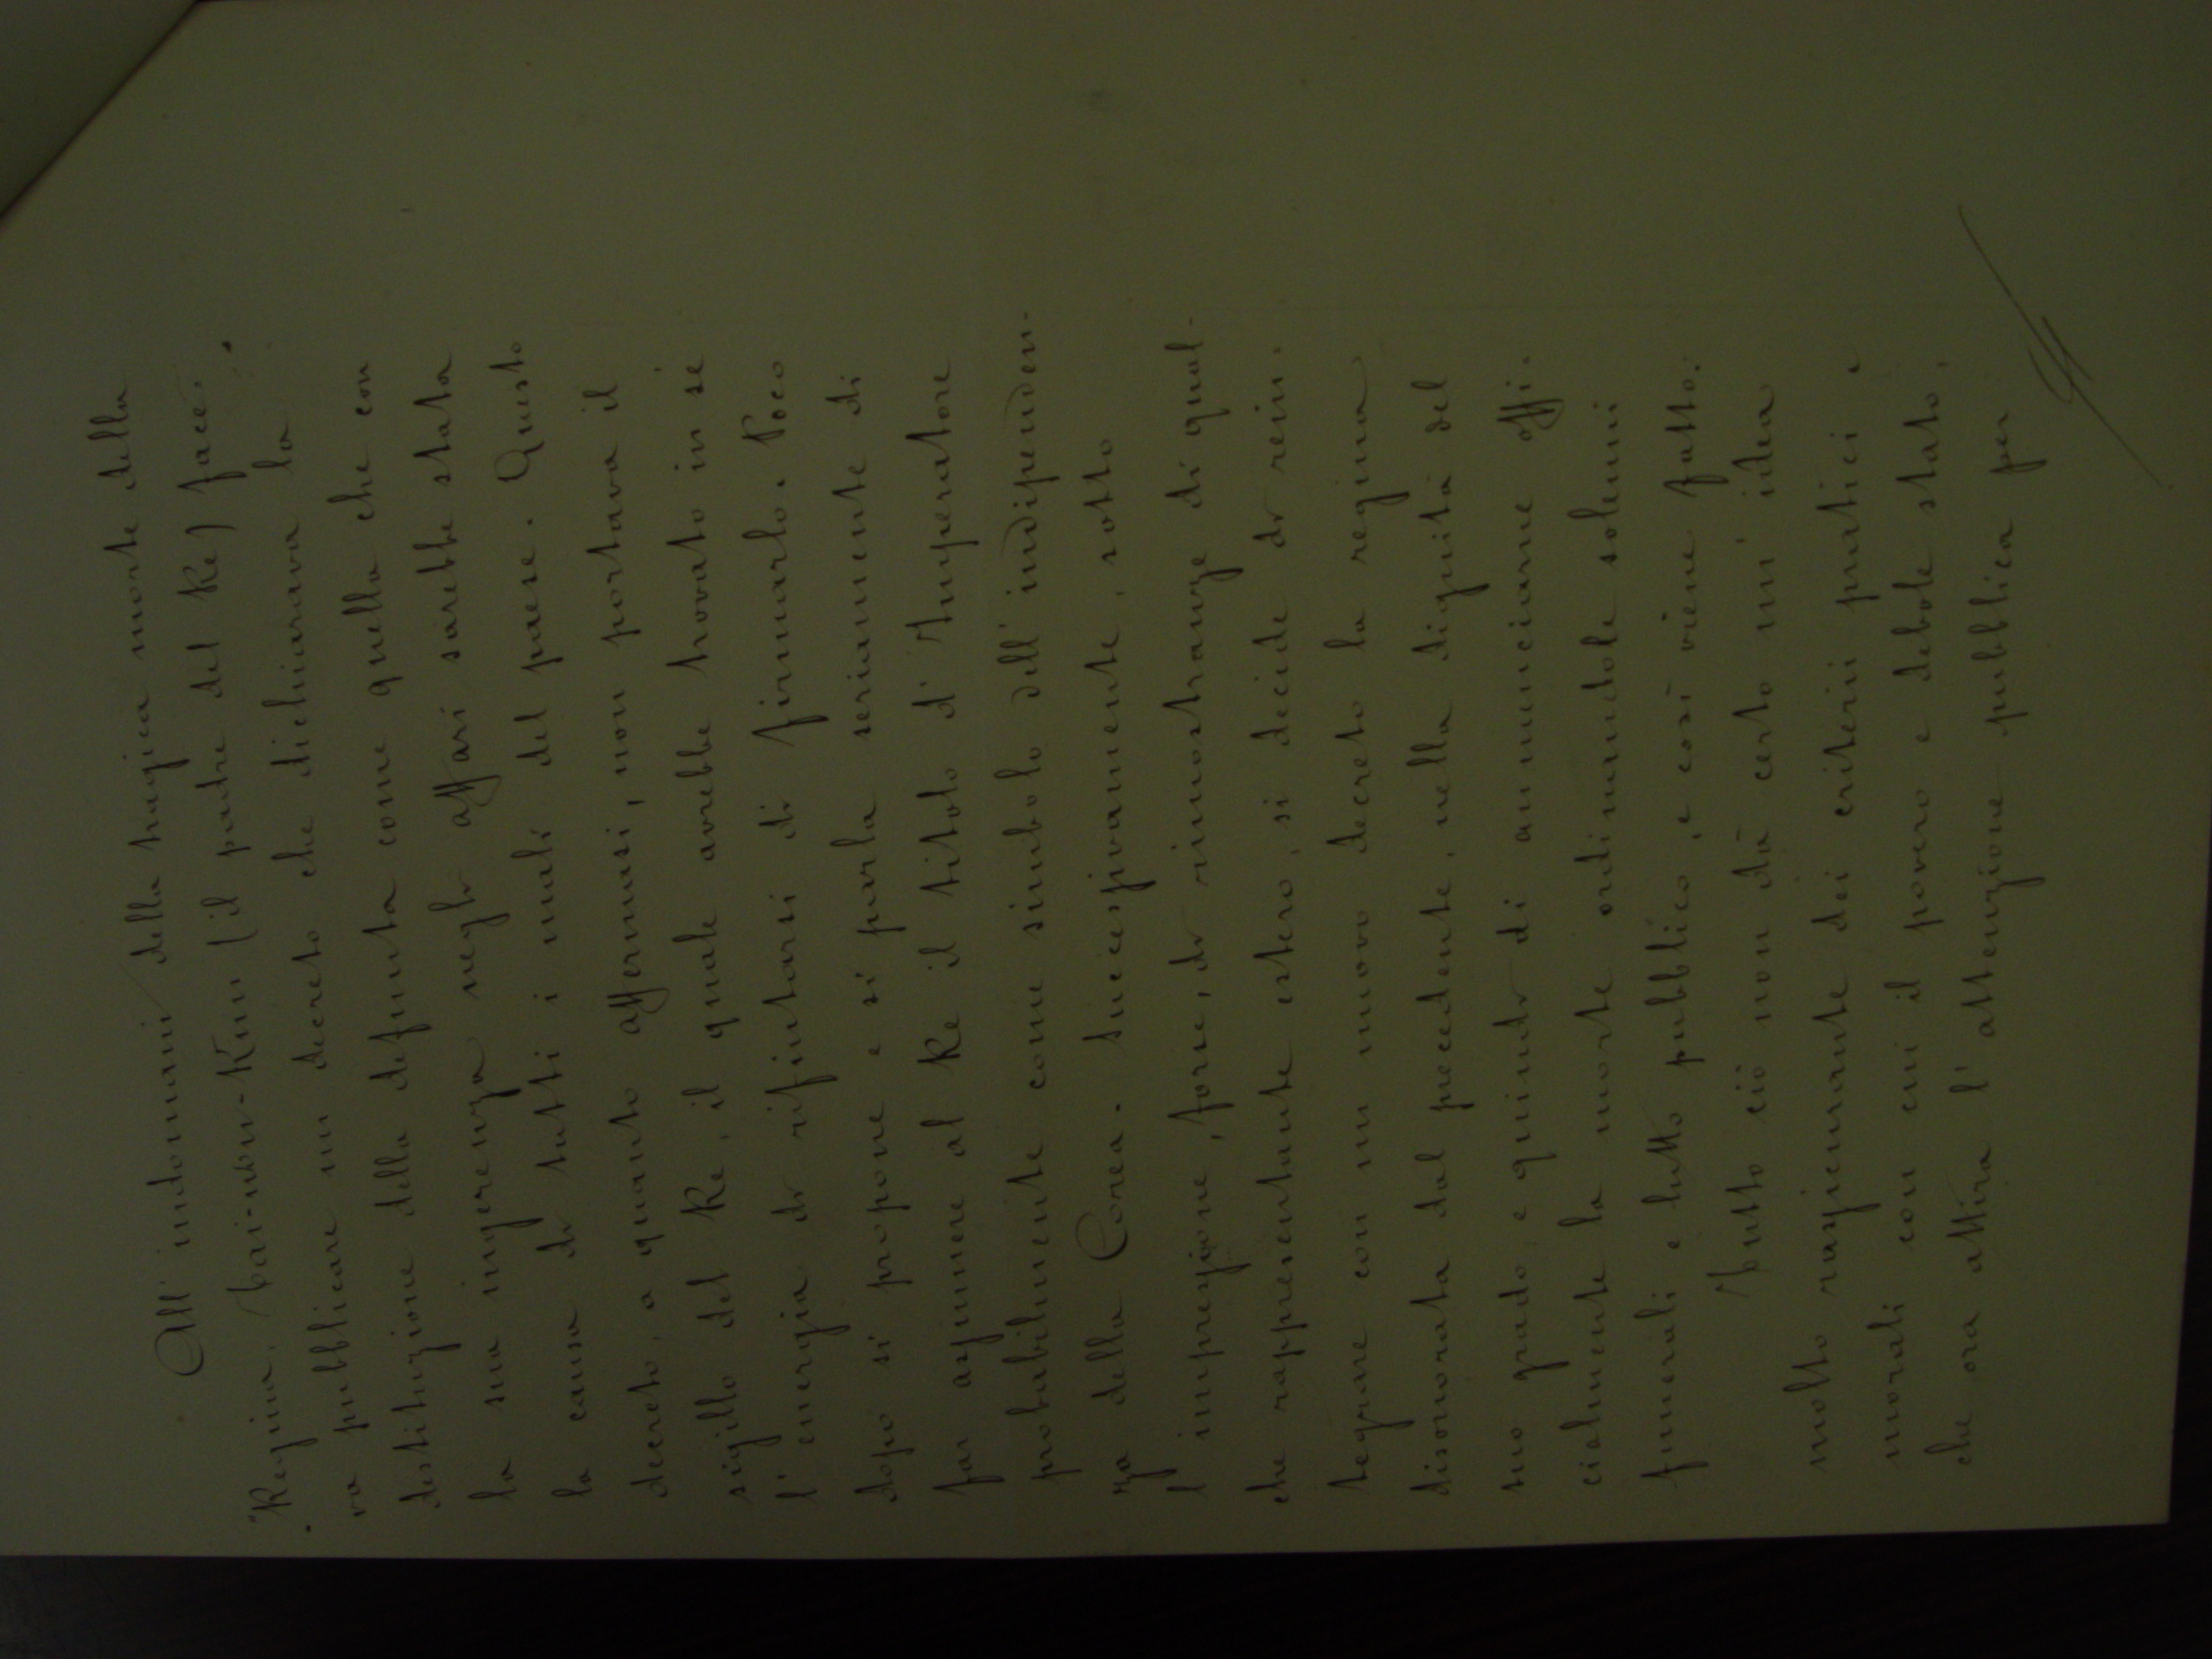 All' indomani della tragica morte della
Regina, Tai-won-Kun (il padre del Re) face-
va pubblicare un decreto che dichiarava la
destituzione della defunta come quella che con
la sua ingerenza negli affari sarebbe stata
la causa di tutti i mali del paese. Questo
decreto, a quanto affermasi, non portava il
sigillo del Re, il quale avrebbe trovato in sè
l'energia di rifiutarsi di firmarlo. Poco
dopo si propone e si parla seriamente di
far assumere al Re il titolo d'Imperatore
probabilmente come simbolo dell'indipenden-
za della Corea. Successivamente, sotto
l'impressione, forse, di rimostranze di qual-
che rappresentante estero, si decide di rein-
tegrare con un nuovo decreto la regina
disonorata dal precedente, nella dignità del
suo grado e quindi di annunciarne offi-
cialmente la morte ordinandole solenni
funerali e lutto pubblico, e così viene fatto.
Tutto ciò non dà certo un'idea
molto rassicurante dei criterii pratici e
morali con cui il povero e debole stato,
che ora attira l'attenzione pubblica per